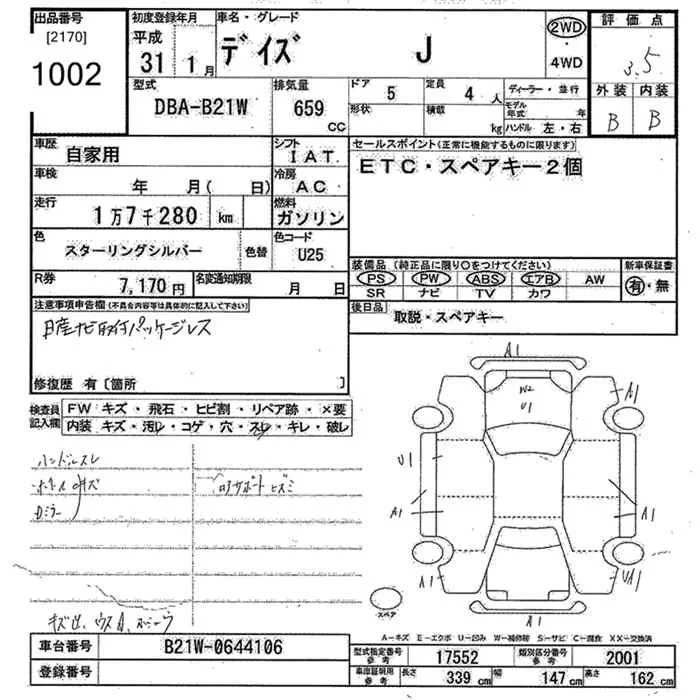 出品番号 初度登録年月 車名・グレード 評価点
[2170] 平成 デイズ J 2WD 3.5
1002 31年 1月 ・ 4WD
型式 排気量 ドア 5 定員 4人 ディーラー・並行 外装 内装
DBA-B21W 659cc 形状 積載 kg モデル年式 年 B B
ハンドル 左・右
車歴 自家用 シフト IAT
車検 年 月( 日) 冷房 AC
走行 1万7千280 km 燃料 ガソリン
色 スターリングシルバー 色替 色コード U25
R券 7,170円 名変通知期限 月 日
セールスポイント(正常に機能するものに限ります)
ETC・スペアキー2個
装備品(純正品に限り○をつけてください) 新車保証書
PS PW ABS エアB AW 有・無
SR ナビ TV カワ
後日品 取説・スペアキー
注意事項申告欄(不具合内容等は具体的に記入して下さい)
日産ナビ取付パッケージレス
修復歴 有〔箇所 〕
検査員記入欄 FW キズ・飛石・ヒビ割・リペア跡・×要
内装 キズ・汚レ・コゲ・穴・スレ・キレ・破レ
ハンドルスレ
キズ
Dミラー
ロアサポートヒズミ
A1
W2
U1
A1
U1
A1
A1
A1
UA1
A1
スペア
A-キズ E-エクボ U-凹み W-補修跡 S-サビ C-腐食 XX-交換済
車台番号 B21W-0644106
登録番号
型式指定番号 参考 17552 類別区分番号 参考 2001
車庫証明用 参考 長さ 339cm 幅 147cm 高さ 162cm